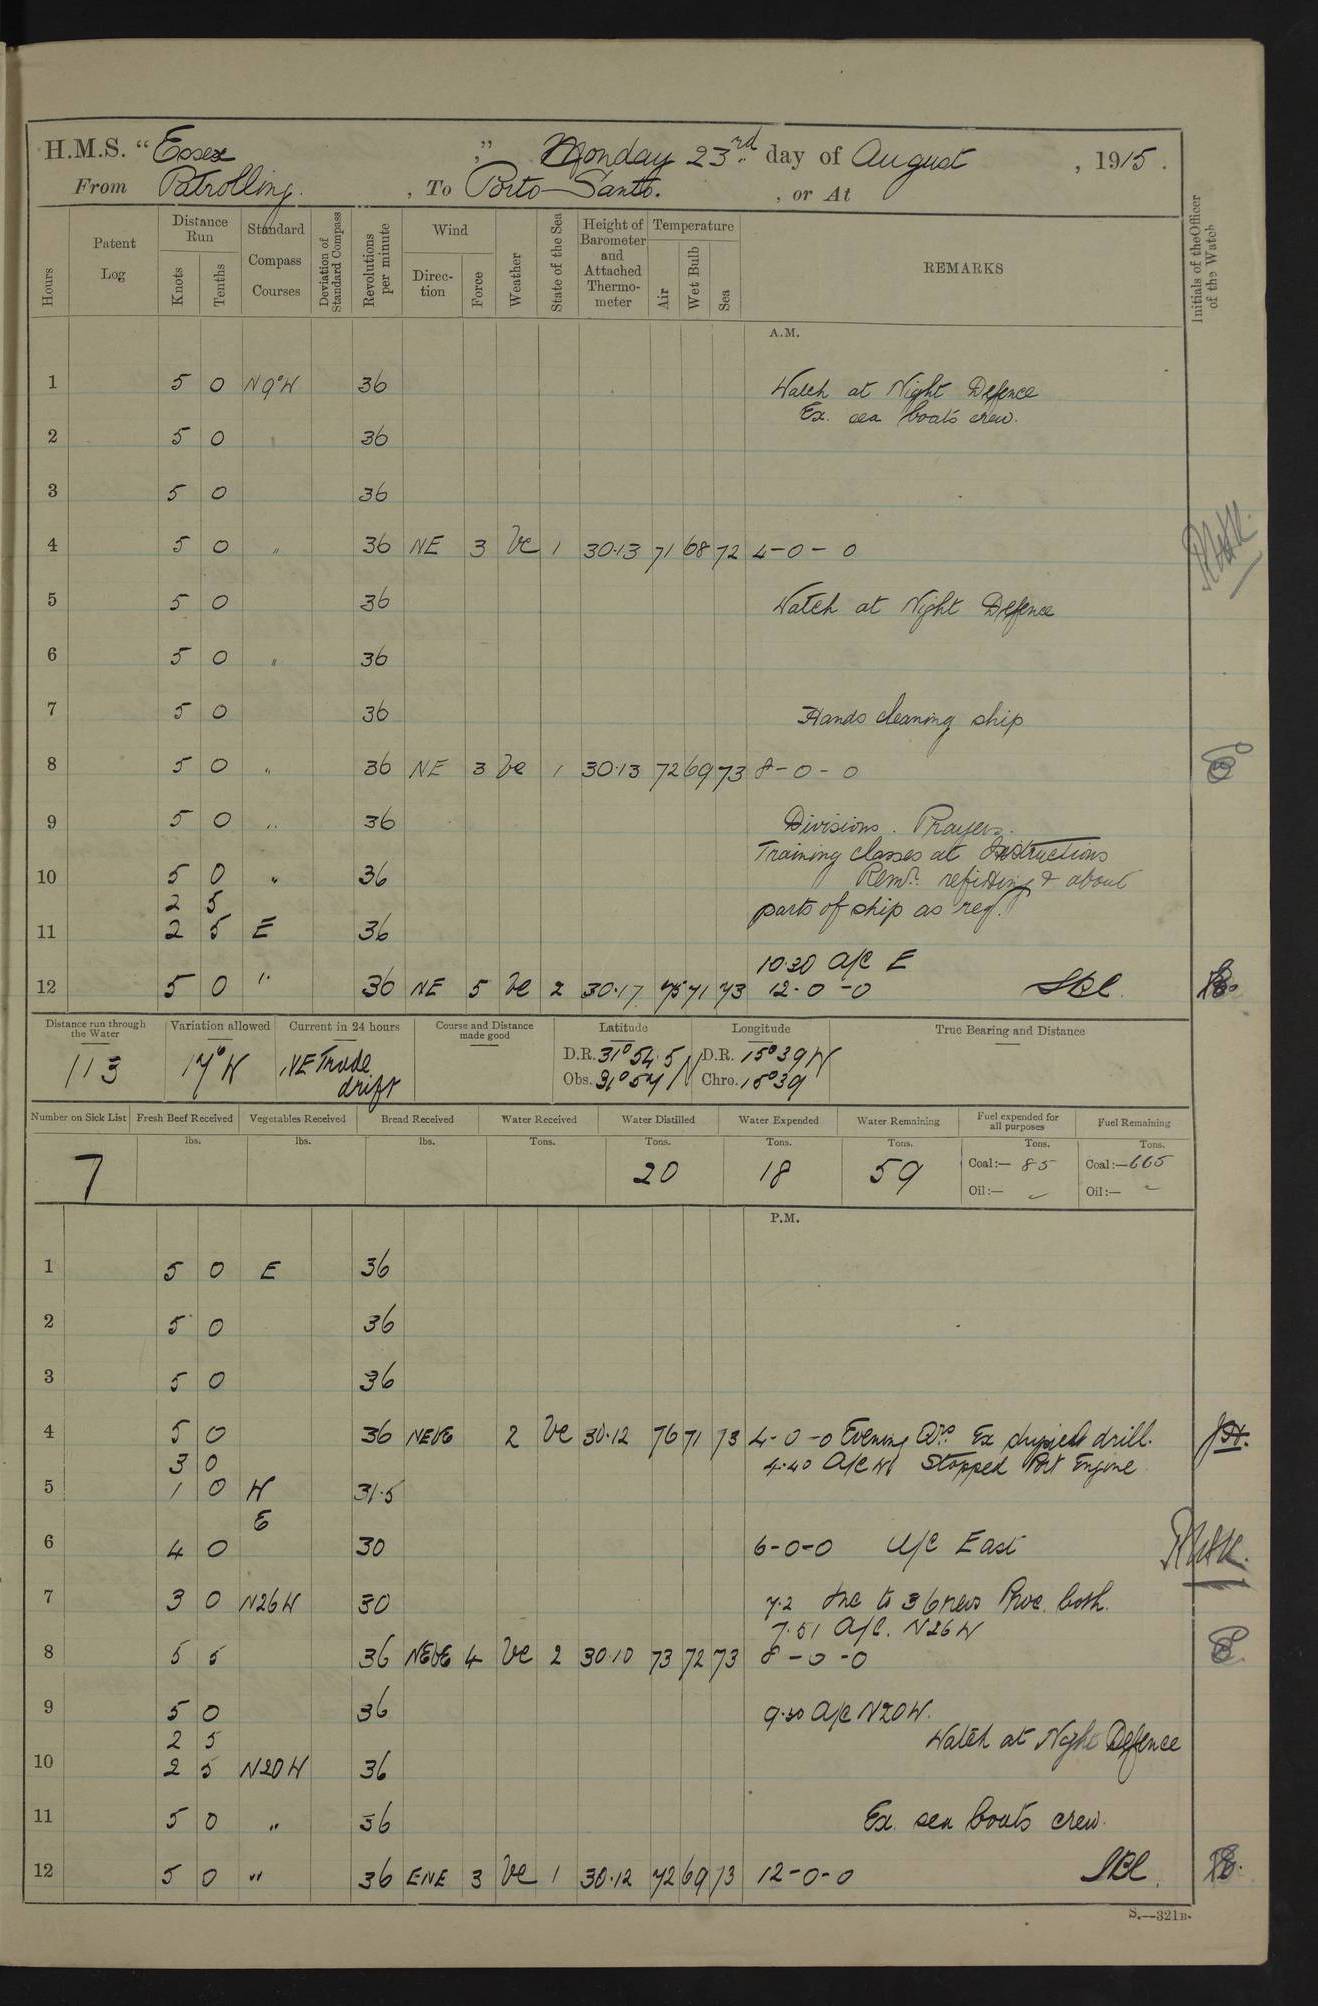 H.M.S. " Essex ," Monday 23rd day of August , 1915 .
From Patrolling. , To Porto Santo. , or At
Hours
Patent Log
Distance Run
Knots
Tenths
Standard Compass Courses
Deviation of Standard Compass
Revolutions per minute
Wind
Direction
Force
Weather
State of the Sea
Height of Barometer and Attached Thermometer
Temperature
Air
Wet Bulb
Sea
REMARKS
Initials of the Officer of the Watch
A.M.
1 5 0 N9°W 36 Watch at Night Defence
Ex. sea boats crew.
2 5 0 36
3 5 0 36
4 5 0 " 36 NE 3 bc 1 30.13 71 68 72 4-0-0
5 5 0 36 Watch at Night Defence
6 5 0 " 36
7 5 0 36 Hands cleaning ship
8 5 0 " 36 NE 3 bc 1 30.13 72 69 73 8-0-0
9 5 0 " 36 Divisions. Prayers.
Training classes at Instructions
10 5 0 " 36 Remdr. refitting & about
2 5 parts of ship as req.
11 2 5 E 36
10.30 A/C E
12 5 0 " 36 NE 5 bc 2 30.17 75 71 73 12-0-0
Distance run through the Water 113
Variation allowed 17°W
Current in 24 hours NE Trade drift
Course and Distance made good
Latitude D.R. 31° 54.5 N Obs. 31° 54
Longitude D.R. 15° 39 W Chro. 15° 39
True Bearing and Distance
Number on Sick List 7
Fresh Beef Received lbs.
Vegetables Received lbs.
Bread Received lbs.
Water Received Tons.
Water Distilled Tons. 20
Water Expended Tons. 18
Water Remaining Tons. 59
Fuel expended for all purposes Tons. Coal:— 85 Oil:—
Fuel Remaining Tons. Coal:— 665 Oil:—
P.M.
1 5 0 E 36
2 5 0 36
3 5 0 36
4 5 0 36 NEbE 2 bc 30.12 76 71 73 4-0-0 Evening Qrs. Ex physical drill.
3 0 4.40 A/C W Stopped Port Engine
5 1 0 W 31.5
E
6 4 0 30 6-0-0 A/C East
7 3 0 N26W 30 7.2 Inc to 36 revs Proc. both.
7.51 A/C. N26W
8 5 5 36 NEbE 4 bc 2 30.10 73 72 73 8-0-0
9 5 0 36 9.30 A/C N20W.
2 5 Watch at Night Defence
10 2 5 N20W 36
11 5 0 " 36 Ex. sea boats crew.
12 5 0 " 36 ENE 3 bc 1 30.12 72 69 73 12-0-0
S.—321B.